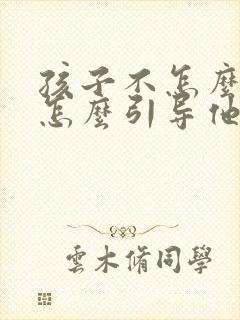 孩子不怎麼
怎麼引导他
雲木脩同學